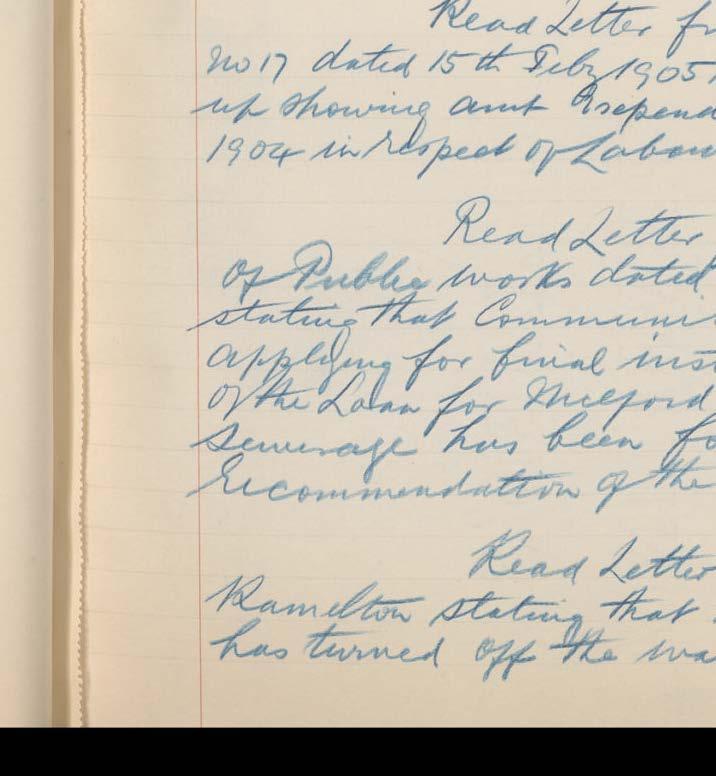 Read Letter fr
No 17 dated 15th Feby 1905
up showing amt Expend
1904 in respect of Labou
Read Letter
of Public works dated
stating that Communi
applying for final inst
of the Loan for Milford
Sewerage has been fo
recommendation of the
Read Letter
Ramelton stating that
has turned off the wa